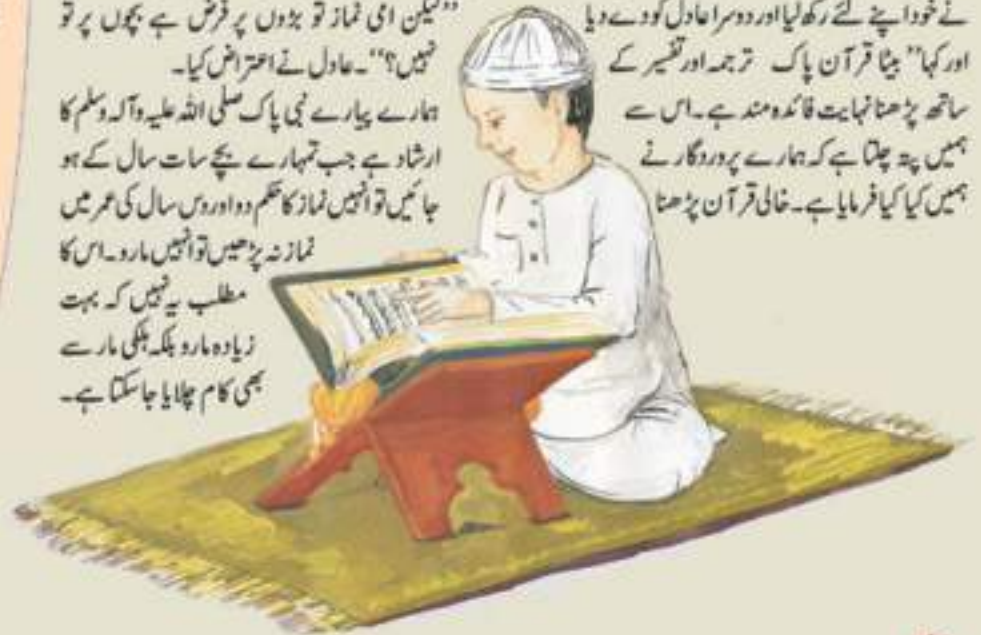 نے خود اپنے لئے رکھ لیا اور دوسرا عادل کو دے دیا
اور کہا ”بیٹا قرآن پاک ترجمہ اور تفسیر کے
ساتھ پڑھنا نہایت فائدہ مند ہے۔ اس سے
ہمیں پتہ چلتا ہے کہ ہمارے پروردگار نے
ہمیں کیا کیا فرمایا ہے۔ خالی قرآن پڑھنا
”لیکن امی نماز تو بڑوں پر فرض ہے بچوں پر تو
نہیں؟“۔ عادل نے اعتراض کیا۔
ہمارے پیارے نبی پاک صلی اللہ علیہ وآلہ وسلم کا
ارشاد ہے جب تمہارے بچے سات سال کے ہو
جائیں تو انہیں نماز کا حکم دو اور دس سال کی عمر میں
نماز نہ پڑھیں تو انہیں مارو۔ اس کا
مطلب یہ نہیں کہ بہت
زیادہ مارو بلکہ ہلکی مار سے
بھی کام چلایا جا سکتا ہے۔